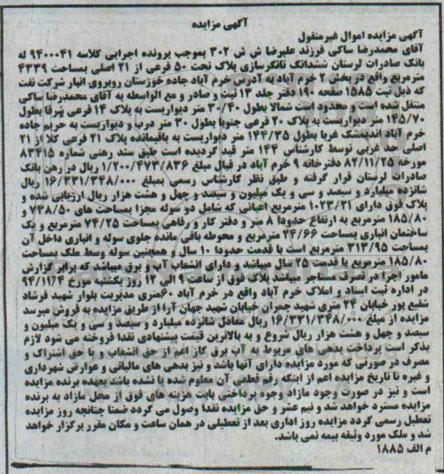 آگهی مزایده
آگهی مزایده اموال غیرمنقول
آقای محمدرضا ساکی فرزند علیرضا ش ش ۳۰۲ بموجب پرونده اجرایی کلاسه ۹۴۰۰۰۴۱ له
بانک صادرات لرستان ششدانگ تانکرسازی پلاک تحت ۵۰ فرعی از ۲۱ اصلی بمساحت ۴۳۳۹
مترمربع واقع در بخش ۲ خرم آباد به آدرس خرم آباد جاده خوزستان روبروی انبار شرکت نفت
که ذیل ثبت ۱۵۸۵ صفحه ۱۹۰ دفتر جلد ۱۳ ثبت و صادر و مع الواسطه به آقای محمدرضا ساکی
منتقل شده است و محدود است شمالا بطول ۳۰/۴۰ متر دیواریست به پلاک ۱۴ فرعی شرقا بطول
۱۴۵/۷۰ متر دیواریست به پلاک ۲۰ فرعی جنوبا بطول ۳۰ متر درب و دیواریست به حریم جاده
خرم آباد اندیمشک غربا بطول ۱۴۴/۳۵ متر دیواریست به باقیمانده پلاک ۲۱ فرعی کلا از ۲۱
اصلی حد غربی توسط کارشناس ۱۴۴ متر قید گردیده است طبق سند رهنی شماره ۸۳۴۱۵
مورخه ۸۲/۱۱/۲۵ دفترخانه ۹ خرم آباد در قبال مبلغ ۱/۲۰۰/۴۷۳/۸۳۶ ریال در رهن بانک
صادرات لرستان قرار گرفته و طبق نظر کارشناس رسمی بمبلغ ۱۶/۳۳۱/۳۴۸/۰۰۰ ریال
شانزده میلیارد و سیصد و سی و یک میلیون و سیصد و چهل و هشت هزار ریال ارزیابی شده و
پلاک فوق دارای ۱۰۲۳/۲۱ مترمربع اعیانی که شامل دو سوله مجزا بمساحت های ۷۳۸/۵۰ و
۱۸۵/۸۰ مترمربع به ارتفاع حدودا ۸ متر و دفتر کار و رفاهی بمساحت ۷۴/۲۵ مترمربع و یک
ساختمان انباری بمساحت ۲۴/۶۶ مترمربع و محوطه باقی مانده جلوی سوله و انباری داخل آن
بمساحت ۳۱۳/۹۵ مترمربع است با قدمت حدودا ۱۰ سال و همچنین سوله وسط ملک بمساحت
۱۸۵/۸۰ مترمربع با قدمت ۲۵ سال میباشد و دارای انشعاب آب و برق میباشد که برابر گزارش
مامور اجرا در تصرف مستاجر میباشد پلاک فوق از ساعت ۹ الی ۱۲ روز یکشنبه مورخ ۹۴/۱۱/۴
در اداره ثبت اسناد و املاک خرم آباد واقع در خرم آباد ۶۰متری مدیریت بلوار شهید فرشاد
شفیع پور خیابان ۲۴ متری شهید عمران خیابان شهید جهان آرا از طریق مزایده به فروش میرسد
مزایده از مبلغ ۱۶/۳۳۱/۳۴۸/۰۰۰ ریال معادل شانزده میلیارد و سیصد و سی و یک میلیون و
سیصد و چهل و هشت هزار ریال شروع و به بالاترین قیمت پیشنهادی نقدا فروخته می شود لازم
بذکر است پرداخت بدهی های مربوط به آب برق گاز اعم از حق انشعاب و یا حق اشتراک و
مصرف در صورتی که مورد مزایده دارای آنها باشد و نیز بدهی های مالیاتی و عوارض شهرداری
و غیره تا تاریخ مزایده اعم از اینکه رقم قطعی آن معلوم شده یا نشده باشد بعهده برنده مزایده
است و نیز در صورت وجود مازاد وجوه پرداختی بابت هزینه های فوق از محل مازاد به برنده
مزایده مسترد خواهد شد و نیم عشر و حق مزایده نقدا وصول می گردد ضمنا چنانچه روز مزایده
تعطیل رسمی گردد مزایده روز اداری بعد از تعطیلی در همان ساعت و مکان مقرر برگزار خواهد
شد و ملک مورد وثیقه بیمه نمی باشد.
م الف ۱۸۸۵